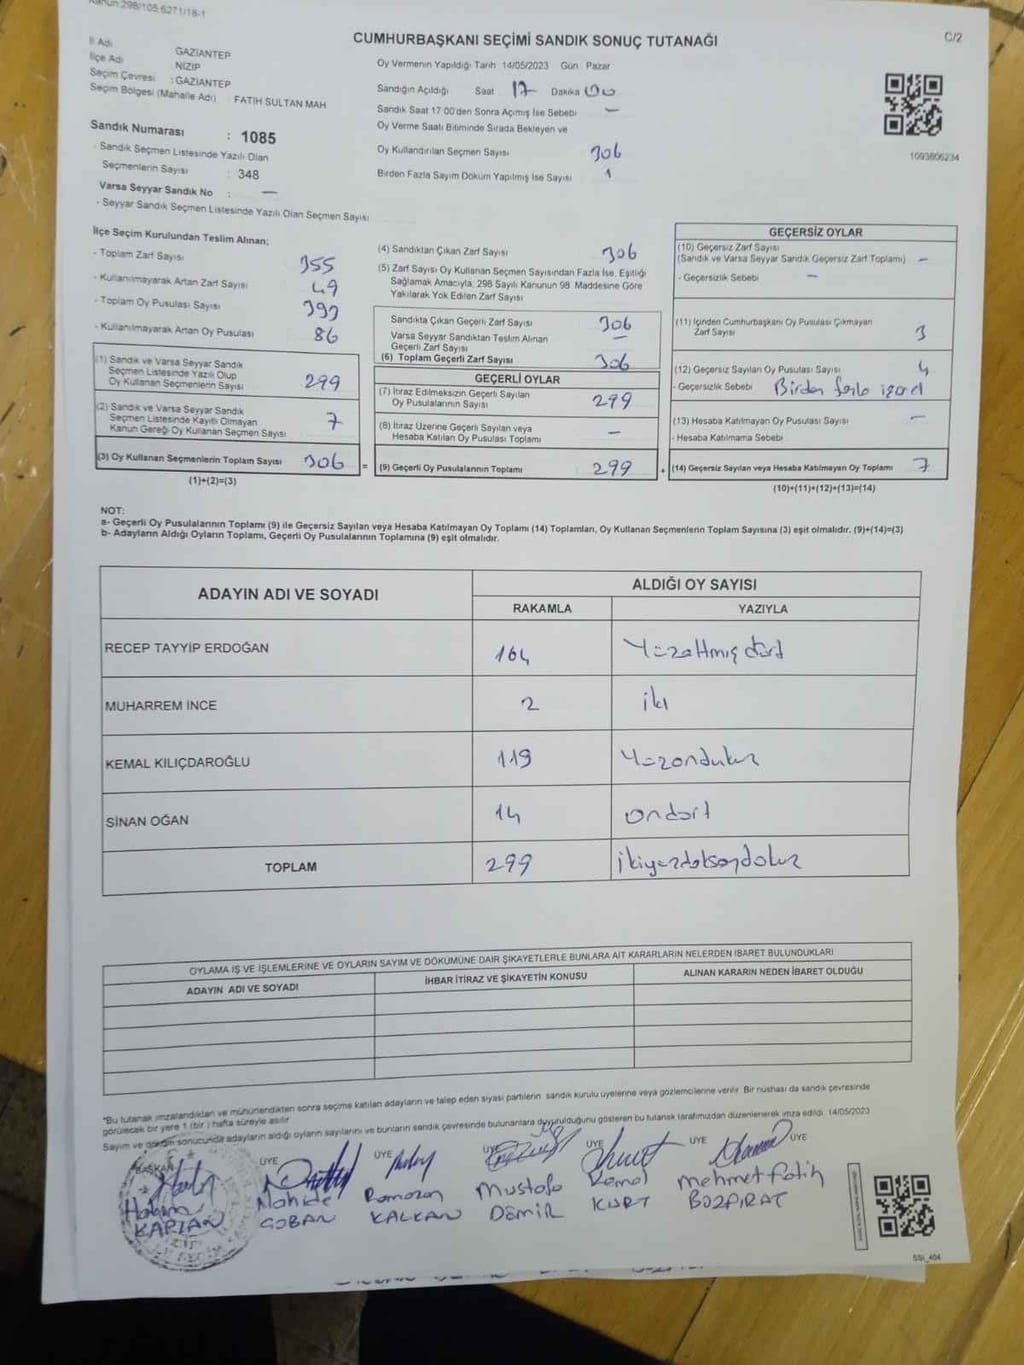 Kanun:298/105-6271/18-1
C/2
CUMHURBAŞKANI SEÇİMİ SANDIK SONUÇ TUTANAĞI
İl Adı GAZİANTEP
İlçe Adı NİZİP
Seçim Çevresi : GAZİANTEP
Seçim Bölgesi (Mahalle Adı) FATİH SULTAN MAH
Sandık Numarası : 1085
- Sandık Seçmen Listesinde Yazılı Olan
Seçmenlerin Sayısı : 348
Varsa Seyyar Sandık No : —
- Seyyar Sandık Seçmen Listesinde Yazılı Olan Seçmen Sayısı
Oy Vermenin Yapıldığı Tarih 14/05/2023 Gün : Pazar
Sandığın Açıldığı Saat 17 Dakika 00
Sandık Saat 17:00'den Sonra Açımış İse Sebebi —
Oy Verme Saati Bitiminde Sırada Bekleyen ve
Oy Kullandırılan Seçmen Sayısı 306
Birden Fazla Sayım Döküm Yapılmış İse Sayısı 1
1093806234
İlçe Seçim Kurulundan Teslim Alınan;
- Toplam Zarf Sayısı 355
- Kullanılmayarak Artan Zarf Sayısı 49
- Toplam Oy Pusulası Sayısı
- Kullanılmayarak Artan Oy Pusulası 86
(1) Sandık ve Varsa Seyyar Sandık
Seçmen Listesinde Yazılı Olup
Oy Kullanan Seçmenlerin Sayısı 299
(2) Sandık ve Varsa Seyyar Sandık
Seçmen Listesinde Kayıtlı Olmayan
Kanun Gereği Oy Kullanan Seçmen Sayısı 7
(3) Oy Kullanan Seçmenlerin Toplam Sayısı 306 =
(1)+(2)=(3)
(4) Sandıktan Çıkan Zarf Sayısı 306
(5) Zarf Sayısı Oy Kullanan Seçmen Sayısından Fazla İse, Eşitliği
Sağlamak Amacıyla, 298 Sayılı Kanunun 98. Maddesine Göre
Yakılarak Yok Edilen Zarf Sayısı
Sandıkta Çıkan Geçerli Zarf Sayısı 306
Varsa Seyyar Sandıktan Teslim Alınan
Geçerli Zarf Sayısı —
(6) Toplam Geçerli Zarf Sayısı 306
GEÇERLİ OYLAR
(7) İtiraz Edilmeksizin Geçerli Sayılan
Oy Pusulalarının Sayısı 299
(8) İtiraz Üzerine Geçerli Sayılan veya
Hesaba Katılan Oy Pusulası Toplamı —
(9) Geçerli Oy Pusulalarının Toplamı 299 +
GEÇERSİZ OYLAR
(10) Geçersiz Zarf Sayısı
(Sandık ve Varsa Seyyar Sandık Geçersiz Zarf Toplamı) —
- Geçersizlik Sebebi —
(11) İçinden Cumhurbaşkanı Oy Pusulası Çıkmayan
Zarf Sayısı 3
(12) Geçersiz Sayılan Oy Pusulası Sayısı 4
- Geçersizlik Sebebi Birden fazla işaret
(13) Hesaba Katılmayan Oy Pusulası Sayısı —
- Hesaba Katılmama Sebebi
(14) Geçersiz Sayılan veya Hesaba Katılmayan Oy Toplamı 7
(10)+(11)+(12)+(13)=(14)
NOT:
a- Geçerli Oy Pusulalarının Toplamı (9) ile Geçersiz Sayılan veya Hesaba Katılmayan Oy Toplamı (14) Toplamları, Oy Kullanan Seçmenlerin Toplam Sayısına (3) eşit olmalıdır. (9)+(14)=(3)
b- Adayların Aldığı Oyların Toplamı, Geçerli Oy Pusulalarının Toplamına (9) eşit olmalıdır.
ADAYIN ADI VE SOYADI
ALDIĞI OY SAYISI
RAKAMLA YAZIYLA
RECEP TAYYİP ERDOĞAN 164 Yüzaltmışdört
MUHARREM İNCE 2 iki
KEMAL KILIÇDAROĞLU 119 Yüzondokuz
SİNAN OĞAN 14 ondört
TOPLAM 299 ikiyüzdoksandokuz
OYLAMA İŞ VE İŞLEMLERİNE VE OYLARIN SAYIM VE DÖKÜMÜNE DAİR ŞİKAYETLERLE BUNLARA AİT KARARLARIN NELERDEN İBARET BULUNDUKLARI
ADAYIN ADI VE SOYADI İHBAR İTİRAZ VE ŞİKAYETİN KONUSU ALINAN KARARIN NEDEN İBARET OLDUĞU
*Bu tutanak imzalandıktan ve mühürlendikten sonra seçime katılan adayların ve talep eden siyasi partilerin sandık kurulu üyelerine veya gözlemcilerine verilir. Bir nüshası da sandık çevresinde
görülecek bir yere 1 (bir) hafta süreyle asılır
Sayım ve döküm sonucunda adayların aldığı oyların sayılarını ve bunların sandık çevresinde bulunanlara duyurulduğunu gösteren bu tutanak tarafımızdan düzenlenerek imza edildi. 14/05/2023
BAŞKAN ÜYE ÜYE ÜYE ÜYE ÜYE ÜYE
Hakim KAPLAN
Nahide ÇOBAN
Ramazan KALKAN
Mustafa DEMİR
Kemal KURT
Mehmet Fatih BOZFIRAT
SSI_404